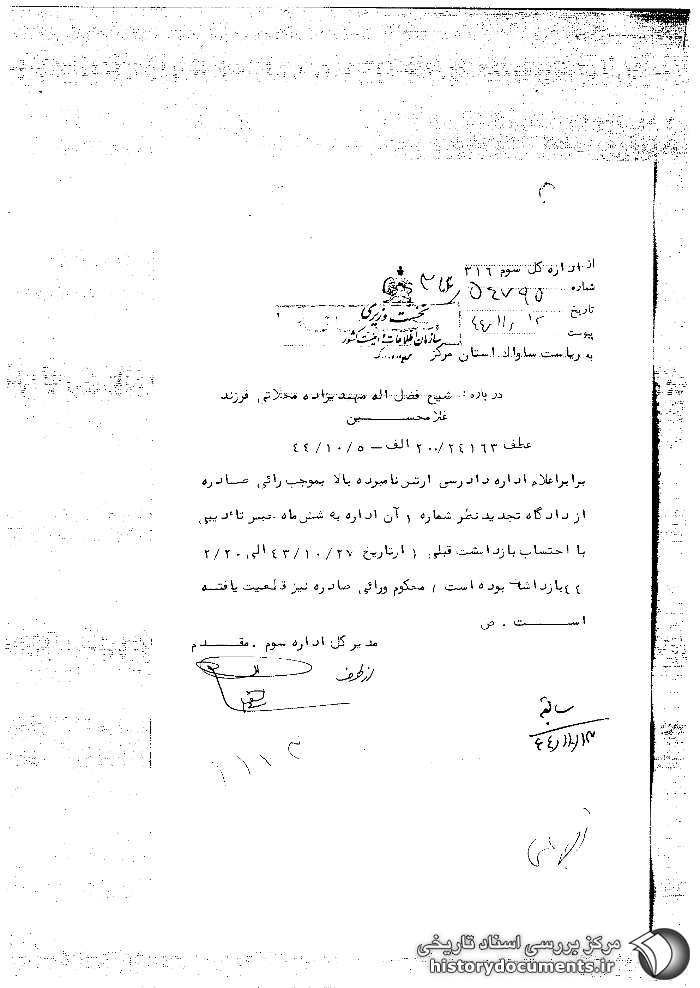 از اداره کل سوم ۳۱۶
شماره ۵۴۷۹۵
تاریخ ۴۴/۱۱/۱۲
پیوست
نخست وزیری
سازمان اطلاعات و امنیت کشور
به ریاست ساواک استان مرکز
درباره : شیخ فضل اله مهدیزاده محلاتی فرزند
غلامحسین
عطف ۲۰۰/۲٤۱۶۳ الف – ٤٤/۱۰/۵
برابر اعلام اداره دادرسی ارتش نامبرده بالا بموجب رائی صادره
از دادگاه تجدید نظر شماره ۱ آن اداره به شش ماه حبس تادیبی
با احتساب بازداشت قبلی ( ازتاریخ ٤۳/۱۰/۲۷ الی ۲/۲۰/
٤٤ بازداشت بوده است ) محکوم ورائی صادره نیز قطعیت یافته
است . ص
مدیر کل اداره سوم . مقدم
از طرف
سابقه
٤٤/۱۱/۱۳
مرکز بررسی اسناد تاریخی
historydocuments.ir